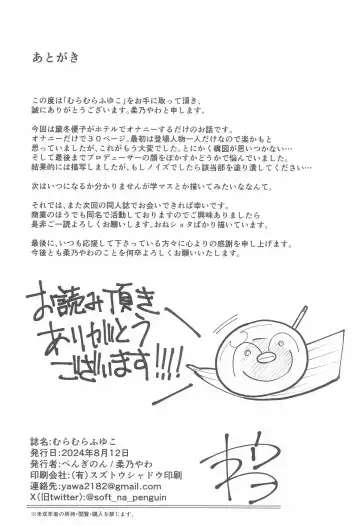 あとがき
この度は「むらむらふゆこ」をお手に取って頂き、
誠にありがとうございます。柔乃やわと申します。
今回は黛冬優子がホテルでオナニーするだけのお話です。
オナニーだけで30ページ。最初は登場人物一人だけなので楽かもと
思っていましたが、これがもう大変でした。とにかく構図が思いつかない…
そして最後までプロデューサーの顔をぼかすかどうかで悩んでいました。
結果的には描写しましたが、もしノイズでしたら該当部を塗り潰してください…
次はいつになるか分かりませんが学マスとか描いてみたいななんて。
それでは、また次回の同人誌でお会いできれば幸いです。
商業のほうでも同名で活動しておりますのでご興味ありましたら
是非ご一読よろしくお願いします。おねショタばかり描いています。
最後に、いつも応援して下さっている方々に心よりの感謝を申し上げます。
今後とも柔乃やわのことを何卒よろしくお願いいたします。
お読み頂き
ありがとう
ございます!!!!
やわ
誌名:むらむらふゆこ
発行日:2024年8月12日
発行者:ぺんぎのん/柔乃やわ
印刷会社:(有)スズトウシャドウ印刷
連絡先:yawa2182@gmail.com
X(旧twitter):@soft_na_penguin
※未成年者の所持・閲覧・購入を禁じます。